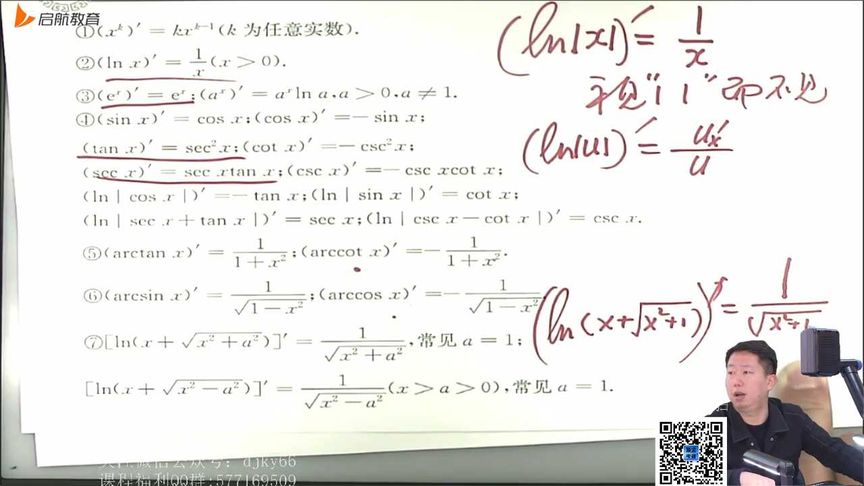 启航教育
①(x^k)′ = kx^{k−1}(k 为任意实数).
②(ln x)′ = 1/x (x > 0).
③(e^x)′ = e^x;(a^x)′ = a^x ln a,a > 0,a ≠ 1.
④(sin x)′ = cos x;(cos x)′ = − sin x;
(tan x)′ = sec²x;(cot x)′ = − csc²x;
(sec x)′ = sec xtan x;(csc x)′ = − csc xcot x;
(ln | cos x |)′ = − tan x;(ln | sin x |)′ = cot x;
(ln | sec x + tan x |)′ = sec x;(ln | csc x − cot x |)′ = csc x.
⑤(arctan x)′ = 1/(1 + x²);(arccot x)′ = − 1/(1 + x²).
⑥(arcsin x)′ = 1/√(1 − x²);(arccos x)′ = − 1/√(1 − x²)
⑦[ln(x + √(x² + a²))]′ = 1/√(x² + a²),常见 a = 1;
[ln(x + √(x² − a²))]′ = 1/√(x² − a²) (x > a > 0),常见 a = 1.
(ln|x|)′ = 1/x
见“| |”即不见
(ln|u|)′ = u′x/u
(ln(x+√(x²+1)))′ = 1/√(x²+1)
djky66
课程福利QQ群:577169509